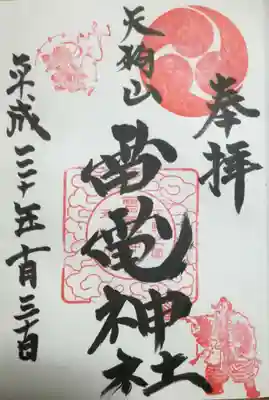 奉拝
天狗山
雷電神社
平成三十年十月三十日